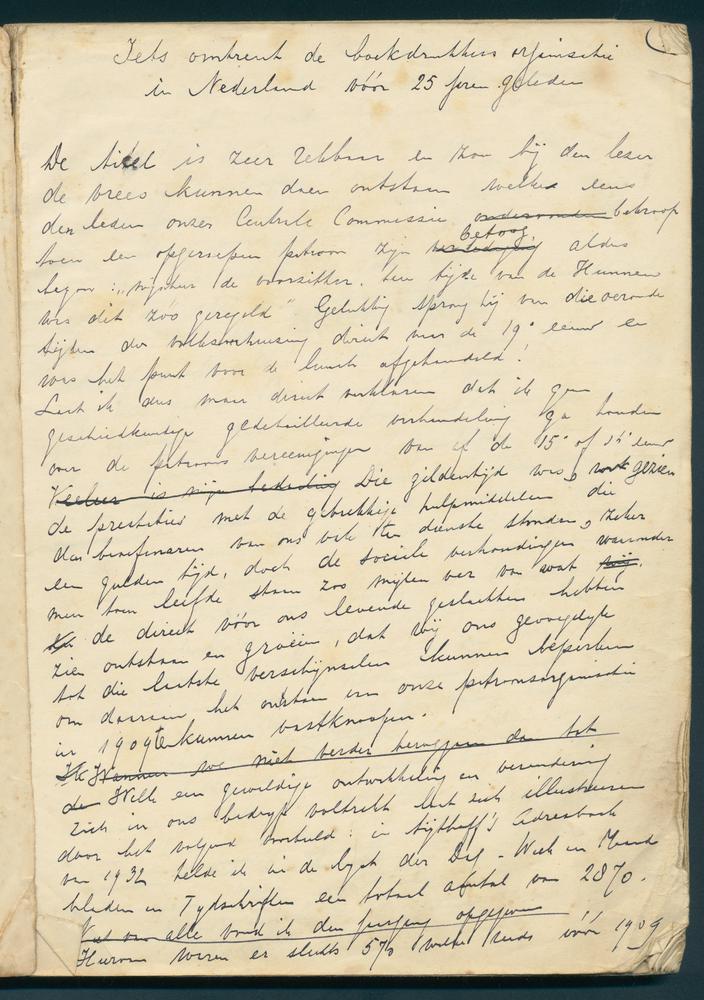 Iets omtrent de boekdrukkers organisatie
in Nederland vóór 25 jaren geleden
De titel is zeer rekbaar en zou bij den lezer
de vrees kunnen doen ontstaan welke eens
den leden onzer Centrale Commissie bekroop
toen een opgeroepen patroon zijn betoog aldus
began: "mijnheer de voorzitter, ten tijde van de Hunnen
was dit zóó geregeld" Gelukkig sprong hij van die oeroude
tijden der volksverhuizing direct naar de 19e eeuw en
was het punt voor de lunch afgehandeld!
Laat ik dus maar direct verklaren dat ik geen
geschiedkundige gedetailleerde verhandeling ga houden
over de patroons vereenigingen van af de 15e of 16e eeuw
Die gildentijd was, gezien
de prestaties met de gebrekkige hulpmiddelen die
den beoefenaren van ons vak ten dienste stonden, zeker
een gulden tijd, doch de sociale verhoudingen waaronder
men toen leefde staan zoo mijlen ver van wat
de direct vóór ons levende geslachten hebben
zien ontstaan en groeien, dat wij ons gevoegelijk
tot die laatste verschijnselen kunnen beperken
om daaraan het ontstaan van onze patroonsorganisatie
in 1909 te kunnen vastknoopen.
Ik Wanneer we niet verder teruggaan dan tot
de Welk een geweldige ontwikkeling en verandering
zich in ons bedrijf voltrekt laat zich illustreeren
door het volgend voorbeeld: in Sijthoff's Adresboek
van 1932 telde ik in de lijst der Dag- Week en Maand
bladen en Tydschriften een totaal aantal van 2870.
Niet van alle vond ik den jaargang opgegeven
Hiervan waren er slechts 570 welke reeds vóór 1909